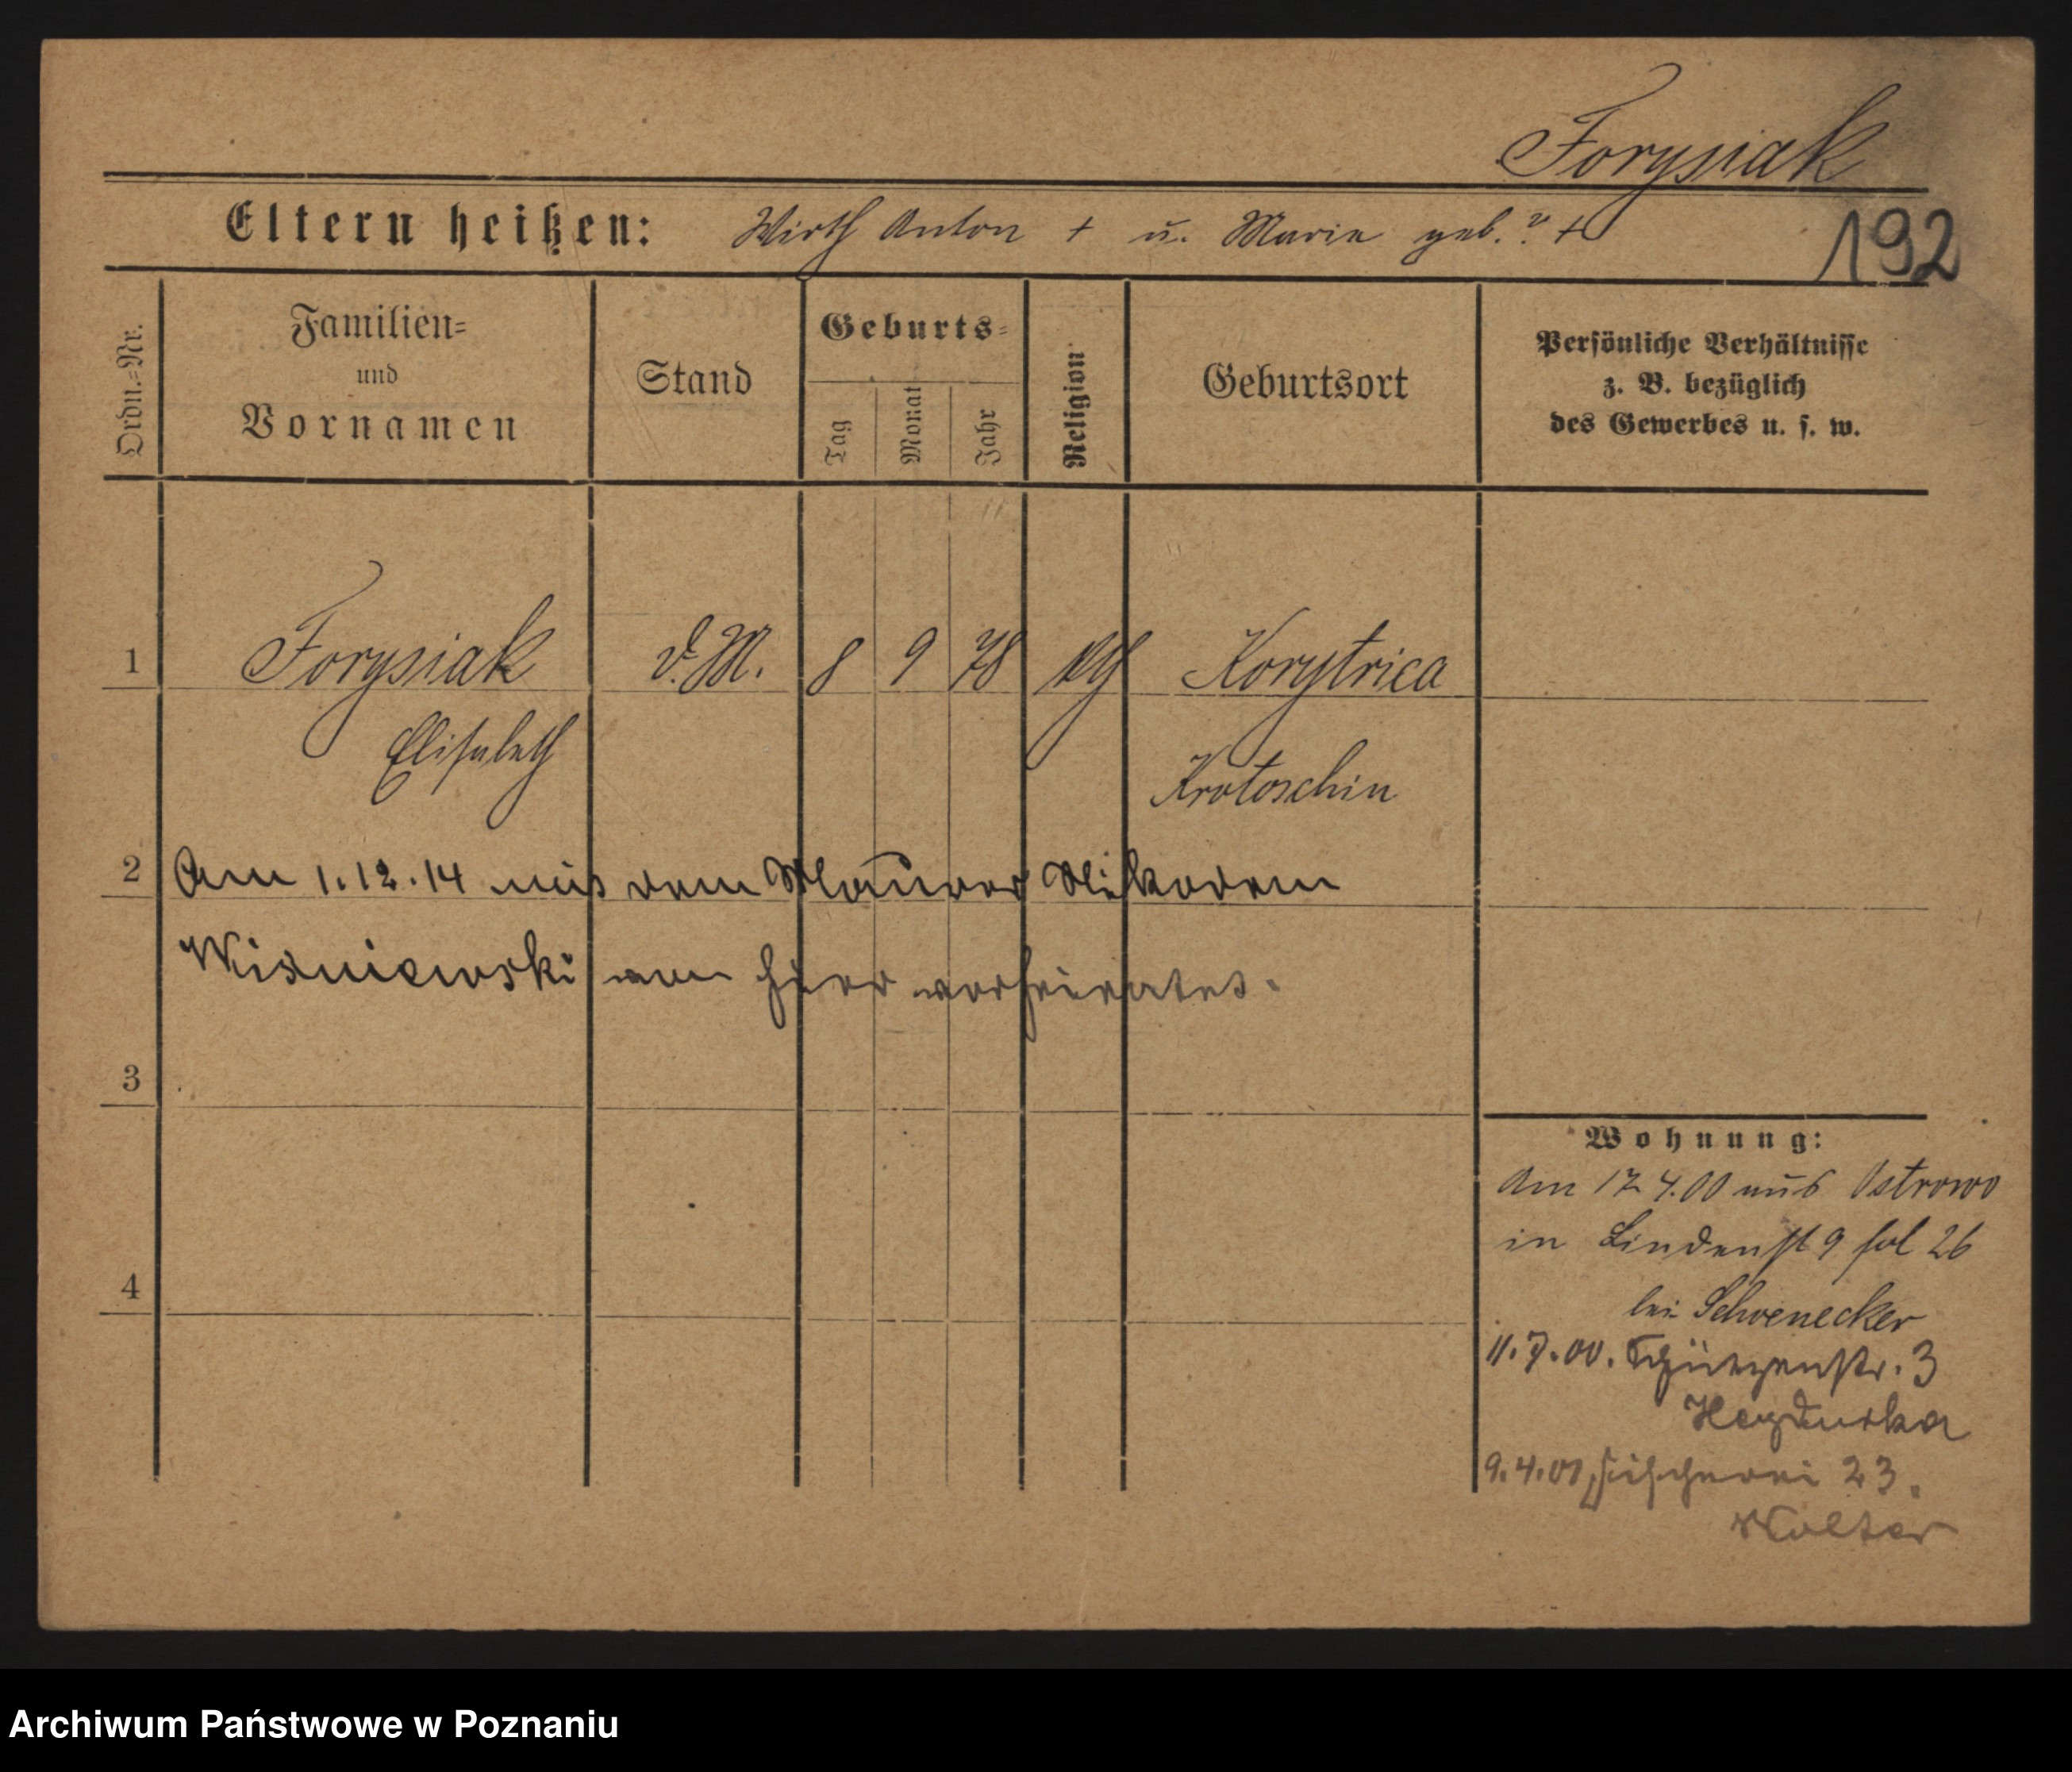 Forysiak
Eltern heißen: Wirth Anton + u. Marie geb. ? +
192
Ordn.=Nr.
Familien=
und
Vornamen
Stand
Geburts=
Tag
Monat
Jahr
Religion
Geburtsort
Persönliche Verhältnisse
z. B. bezüglich
des Gewerbes u. s. w.
1 Forysiak 8 9 78 kth Korytnica
Elisabeth
Krotoschin
2 Am 1.12.14 mit dem Maurer Nikodem
Wisniewski von hier verheiratet.
3
4
Wohnung:
Am 17 4.00 aus Ostrowo
in Lindenst 9 fol 26
bei Schwenecker
11.7.00. Schützenstr. 3
9.4.01 Fischerei 23.
Wolter
Archiwum Państwowe w Poznaniu